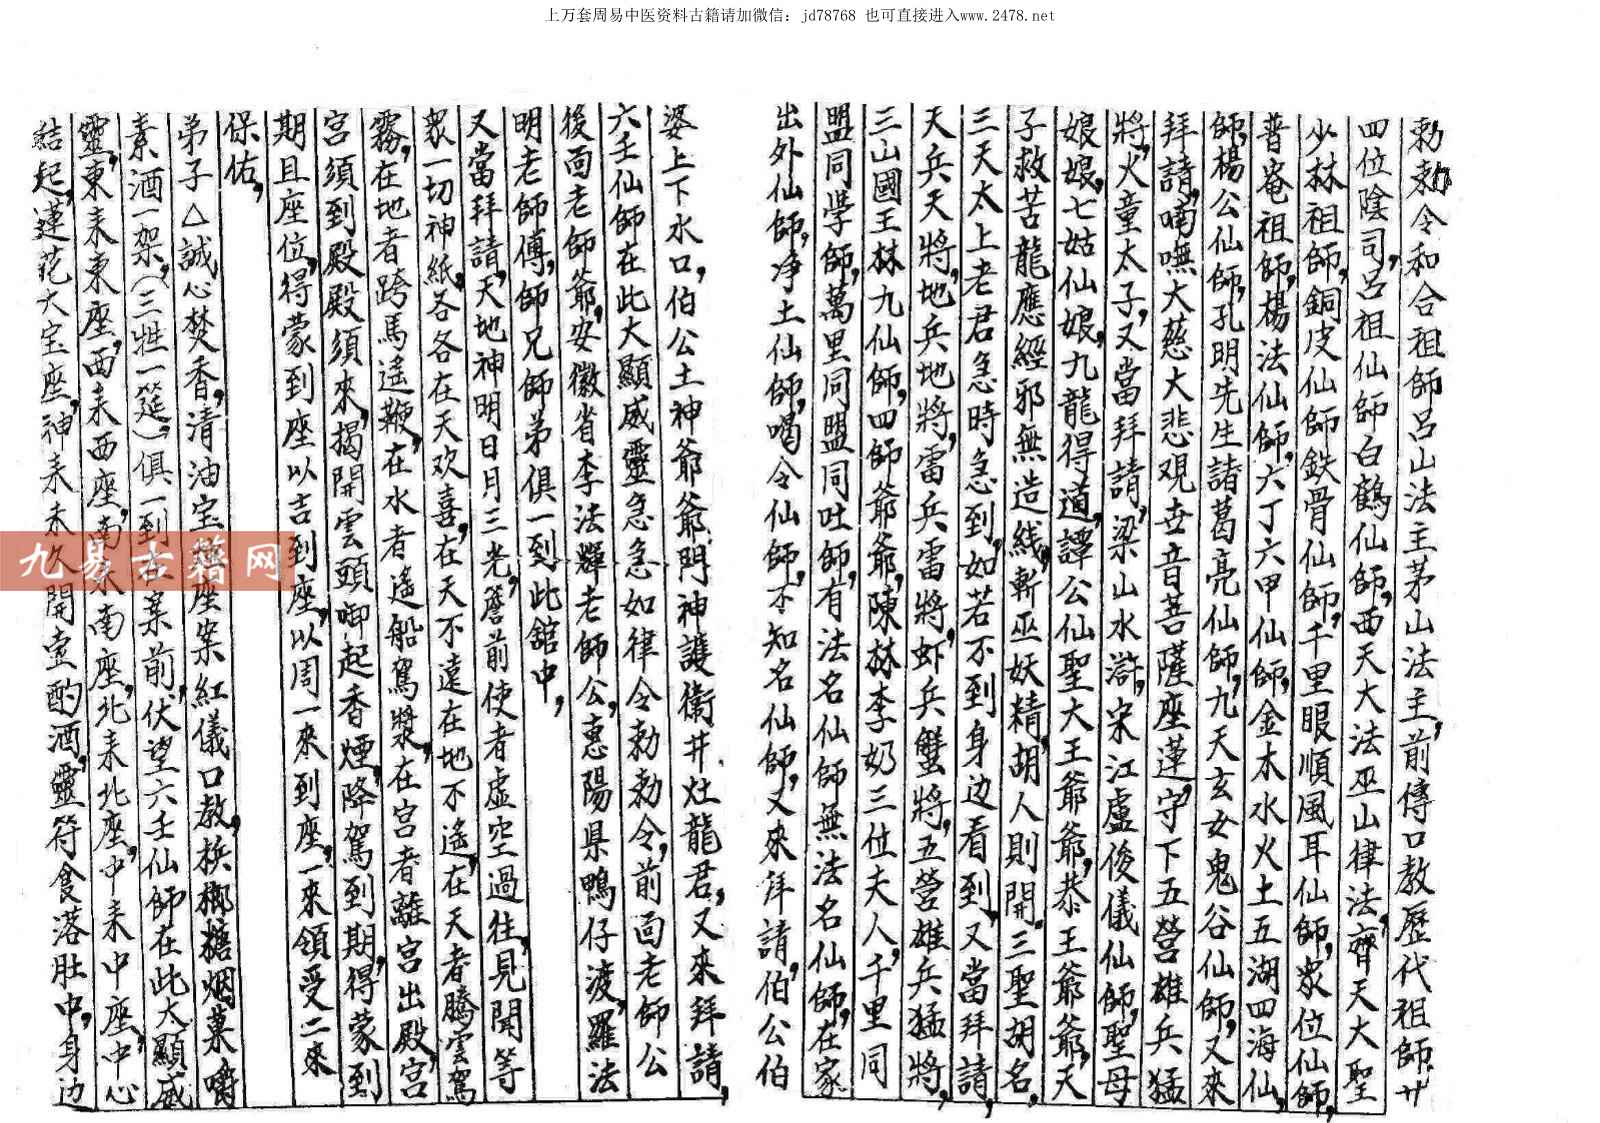 上万套周易中医资料古籍请加微信：jd78768 也可直接进入www.2478.net
勅勅令和合祖師呂山法主茅山法主，前傳口教歷代祖師，廿
四位陰司，呂祖仙師白鶴仙師，西天大法巫山律法，齊天大聖
少林祖師，銅皮仙師鉄骨仙師，千里眼順風耳仙師，眾位仙師，
普庵祖師，楊法仙師，六丁六甲仙師，金木水火土五湖四海仙
師，楊公仙師，孔明先生諸葛亮仙師，九天玄女鬼谷仙師，又來
拜請，喃嘸大慈大悲观世音菩薩座蓮，守下五營雄兵猛
將，火童太子，又當拜請，梁山水滸，宋江盧俊儀仙師，聖母
娘娘，七姑仙娘，九龍得道，譚公仙聖大王爺爺，恭王爺爺，天
子救苦龍應經邪無造线，斬巫妖精，胡人則開。三聖胡名。
三天太上老君急時急到，如若不到身边看到，又當拜請，
天兵天將，地兵地將，雷兵雷將，虾兵蟹將，五营雄兵猛將，
三山國王林九仙師，四師爺爺，陳林李奶三位夫人，千里同
盟同學師，萬里同盟同吐師，有法名仙師無法名仙師，在家
出外仙師，净土仙師，喝令仙師，不知名仙師，又來拜請，伯公伯
婆上下水口，伯公土神爺爺，門神護衛井灶龍君，又來拜請，
六壬仙師在此大顯威靈急急如律令勅勅令，前面老師公
後面老師爺，安徽省李法輝老師公，惠陽県鴨仔渡，羅法
明老師傅，師兄師弟俱一到此舘中，
又當拜請，天地神明日月三光，簷前使者虛空過往，見聞等
眾一切神紙，各各在天欢喜，在天不遠在地不遙，在天者騰雲駕
霧，在地者跨馬遙鞭，在水者遙船駕漿，在宫者離宫出殿，宫
宫須到殿殿須來，揭開雲頭啣起香煙，降駕到期，得蒙到
期且座位，得蒙到座以吉到座，以周一來到座，一來領受二來
保佑，
弟子△誠心焚香，清油宝燭座案紅儀口教，梹榔糖烟菓嚼
素酒一架，（三牲一筵）俱一到在案前，伏望六壬仙師在此大顯威
靈，東耒東座，西耒西座，南耒南座，北耒北座，中耒中座，中心
結起，蓮花大宝座，神耒未久開壺酌酒，靈符食落肚中，身边
九易古籍网